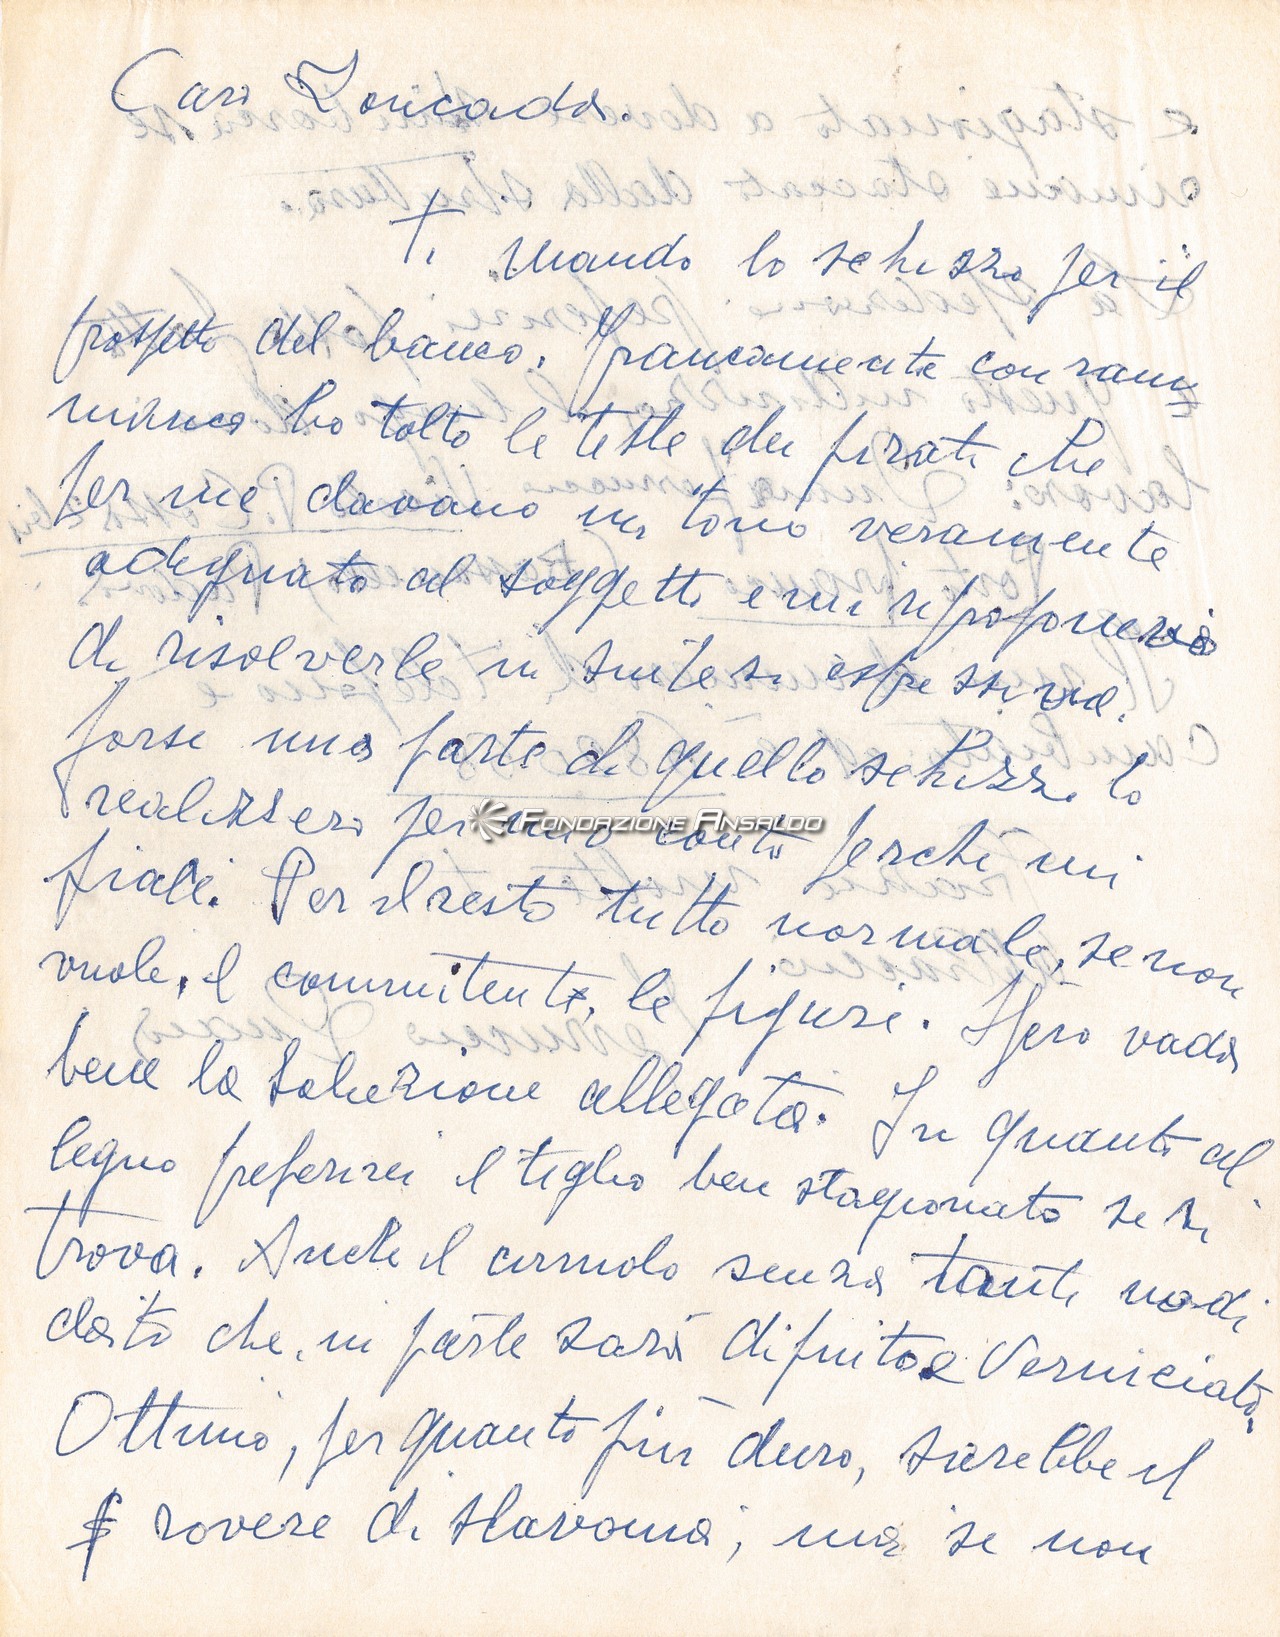 Caro Zoncada.
Ti mando lo schizzo per il
prospetto del banco. Francamente con ram
marico ho tolto le teste dei pirati che
per me davano un tono veramente
adeguato al soggetto e mi ripropone
di risolverle in sintesi espressiva.
forse una parte di quello schizzo lo
realizzerò per mio conto perché mi
piace. Per il resto tutto normale, se non
vuole, il committente, le figure. Spero vada
bene la soluzione allegata. In quanto al
legno preferirei il tiglio ben stagionato se si
trova. Anche il cirmolo senza tanti nodi
dato che, in parte sarà dipinto e verniciato,
Ottimo, per quanto più duro, sarebbe il
rovere di slavonia, ma se non
Fondazione Ansaldo